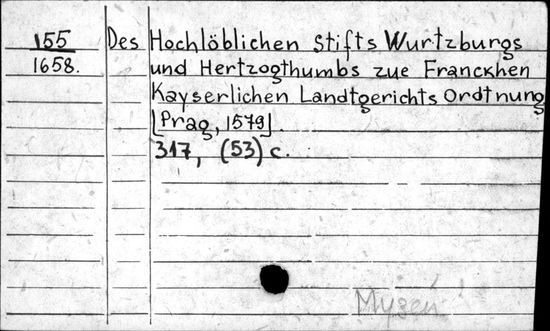 155 Des Hochlöblichen Stifts Wurtzburgs
1658. und Hertzogthumbs zue Franckhen
Kayserlichen Landtgerichts Ordtnung
[Prag, 1579].
317, (53) c.
Музей